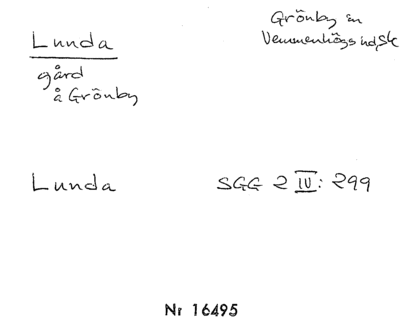 Lunda
gård
å Grönby
Grönby sn
Vemmenhögs hd, Sk
Lunda SGG 2 IV: 299
Nr 16495